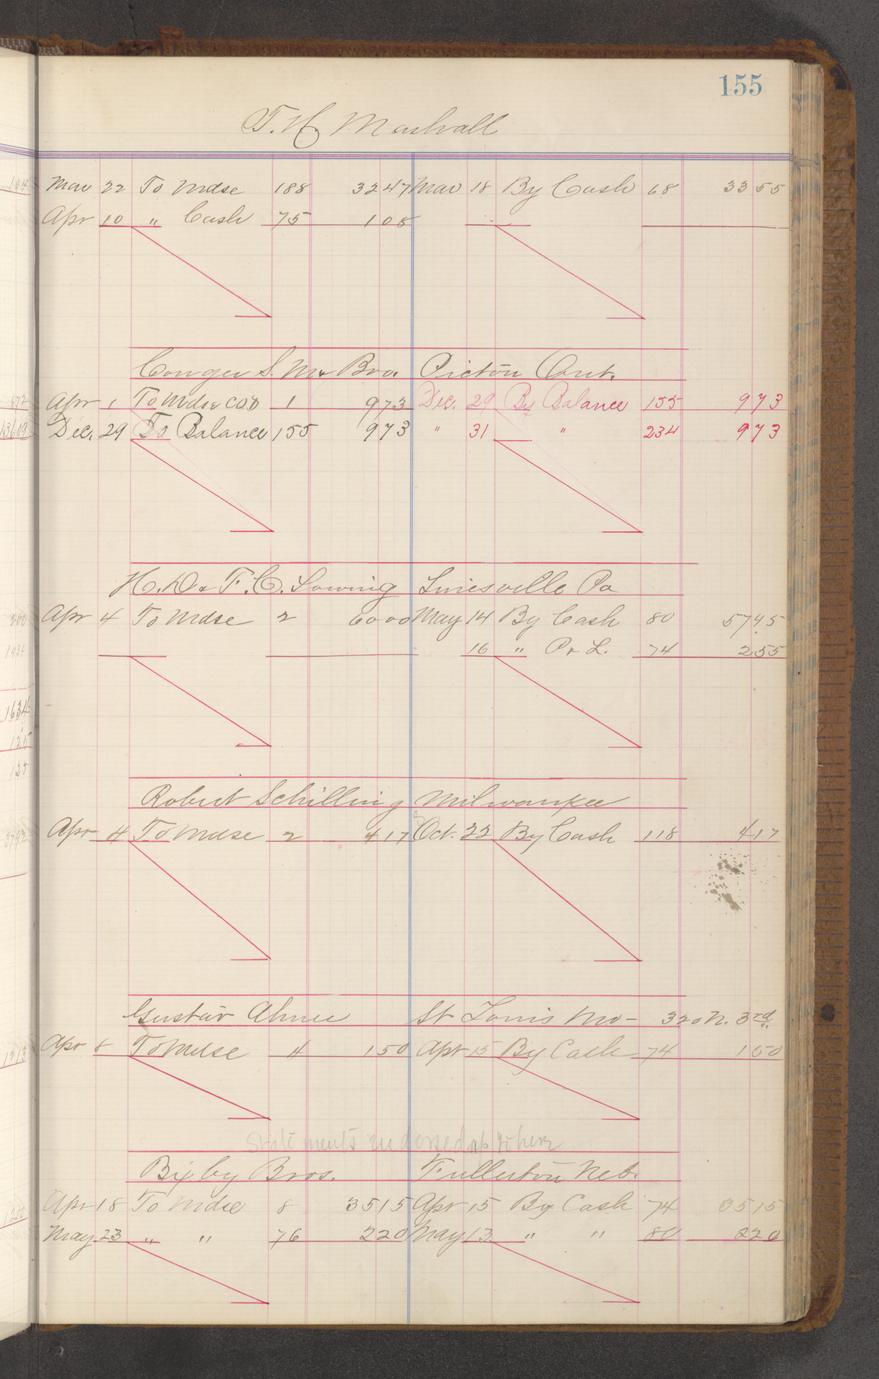 155
T. H. Marhall
Mar 22 To Mdse 188 3247 Mar 18 By Cash 68 3355
Apr 10 " Cash 75 108
Conger S. M. & Bro. Picton Ont.
Apr 1 To Mdse COD 1 973 Dec. 29 By Balance 155 973
Dec. 29 To Balance 155 973 " 31 " 234 973
H. D. & F. C. Lowing Linesville Pa
Apr 4 To Mdse 2 6000 May 14 By Cash 80 5745
16 " Pr L. 74 255
Robert Schilling Milwaukee
Apr 4 To Mdse 2 417 Oct. 22 By Cash 118 417
Gustav St Louis Mo- 320 N. 3rd
Apr 8 To Mdse 4 150 Apr 15 By Cash 74 150
Statements up to here
Bixby Bros. Fullerton Neb.
Apr 18 To Mdse 8 3515 Apr 15 By Cash 74 3515
May 23 " " 76 220 May 13 " " 80 220